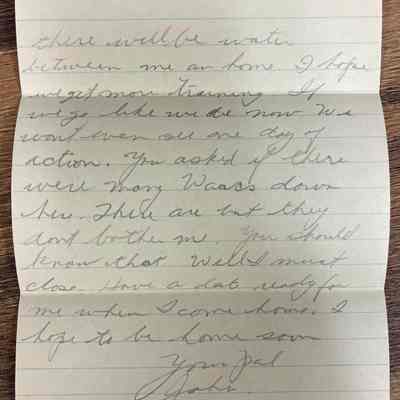 there will be water
between me an home. I hope
we get more training. If
we go like we do now We
wont even see one day of
action. You asked if there
were many Waacs down
here. There are but they
dont bother me. You should
know that. Well I must
close. Have a date ready for
me when I come home. I
hope to be home soon
Your pal
John